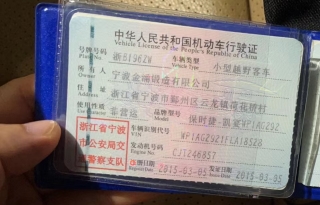 中华人民共和国机动车行驶证
Vehicle License of the People's Republic of China
号牌号码 浙B196ZW 车辆类型 小型越野客车
Plate No. Vehicle Type
所有人 宁波金瑞锻造有限公司
Owner
住址 浙江省宁波市鄞州区云龙镇荷花桥村
使用性质 非营运 品牌型号 保时捷-凯宴WP1AG292
浙江省宁波
市公安局交
通警察支队
车辆识别代号
VIN
发动机号码 CJT246857
Engine No.
注册日期 2015-03-05 发证日期 2015-03-05
Register Date Issue Date